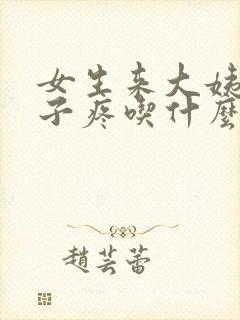 女生来大姨
子疼喫什麼
趙芸蕾